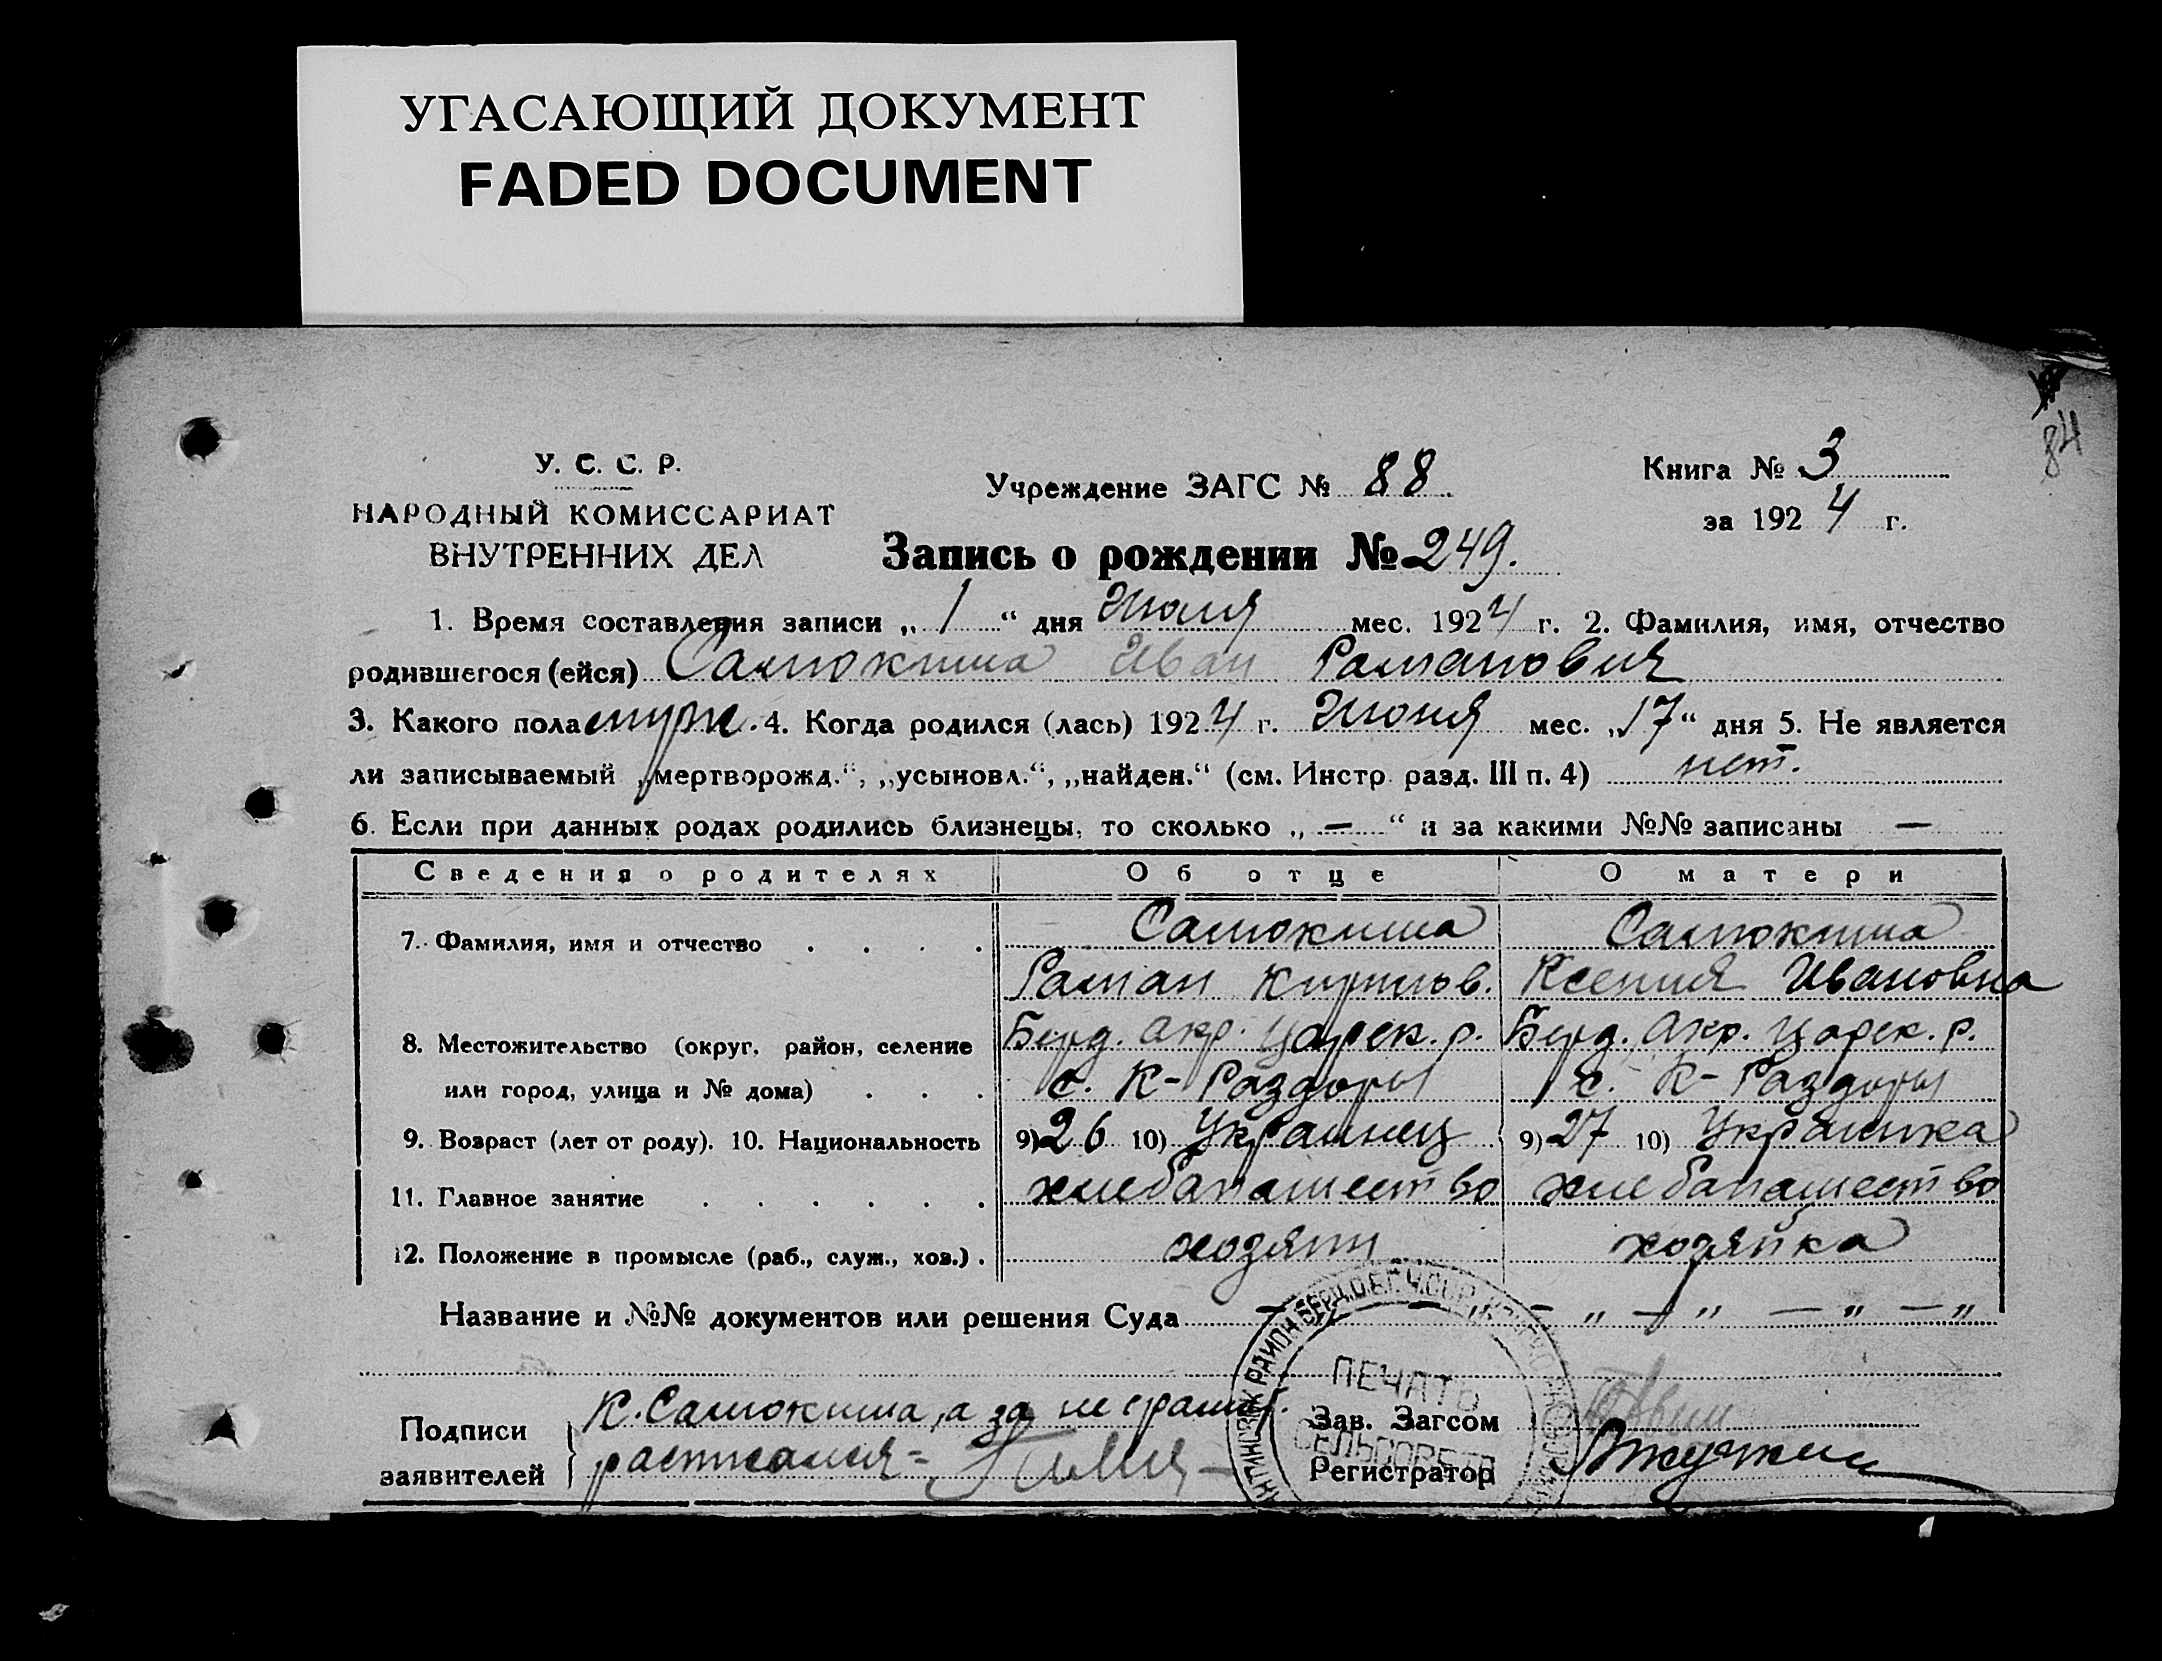 УГАСАЮЩИЙ ДОКУМЕНТ
FADED DOCUMENT
84
У. С. С. Р.
НАРОДНЫЙ КОМИССАРИАТ
ВНУТРЕННИХ ДЕЛ
Учреждение ЗАГС № 88
Книга № 3
за 1924 г.
Запись о рождении № 249.
1. Время составления записи „ 1 “ дня Июля мес. 1924 г. 2. Фамилия, имя, отчество
родившегося (ейся) Самокиша Иван Раманович
3. Какого пола муж. 4. Когда родился (лась) 1924 г. Июня мес. „17“ дня 5. Не является
ли записываемый „мертворожд.“, „усыновл.“, „найден.“ (см. Инстр. разд. III п. 4) нет.
6. Если при данных родах родились близнецы, то сколько „ — “ и за какими №№ записаны —
Сведения о родителях Об отце О матери
7. Фамилия, имя и отчество . . . . Самокиша Самокиша
Раман Кирилов. Ксения Ивановна
8. Местожительство (округ, район, селение Берд. Окр. Царек. р. Берд. Окр. Царек. р.
или город, улица и № дома) . . . с. К-Раздоры с. К-Раздоры
9. Возраст (лет от роду). 10. Национальность 9) 26 10) Украинец 9) 27 10) Украинка
11. Главное занятие . . . . . . хлебапашество хлебапашество
12. Положение в промысле (раб., служ., хоз.) . хозяин хозяйка
Название и №№ документов или решения Суда — „ — „ — „ — „ — „
Подписи
заявителей
К. Самокиша, а за не грамот.
расписался -
ПЕЧАТЬ
СЕЛЬСОВЕТА
Зав. Загсом
Регистратор